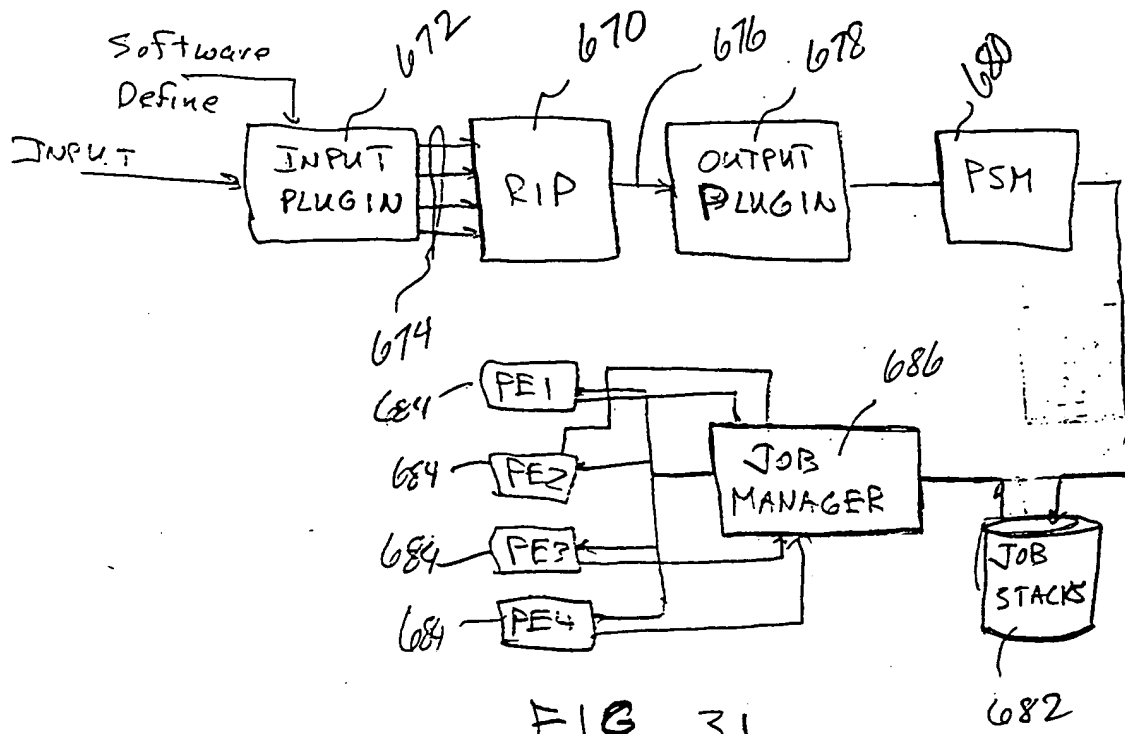 Software
Define
INPUT
672
670
676
678
680
INPUT
PLUGIN
RIP
OUTPUT
PLUGIN
PSM
674
684
PE1
684
PE2
684
PE3
684
PE4
686
JOB
MANAGER
JOB
STACKS
682
FIG 31